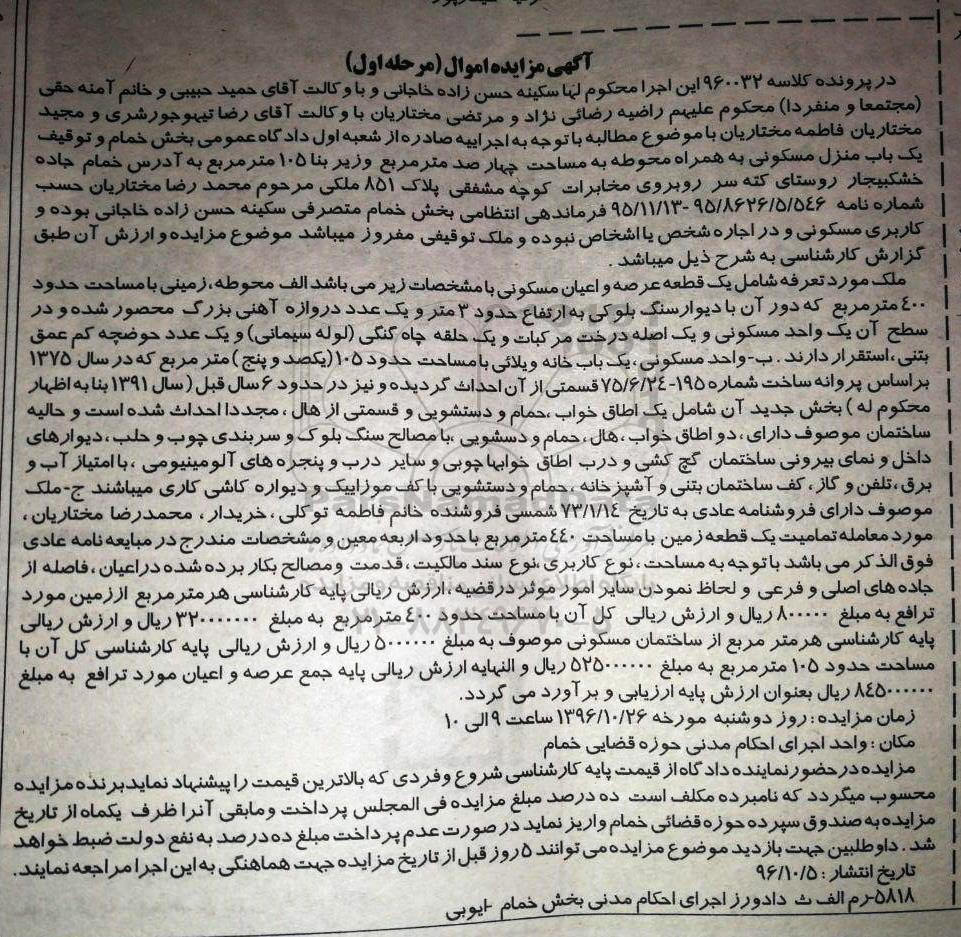 آگهی مزایده اموال (مرحله اول)
در پرونده کلاسه ۹۶۰۰۳۲ این اجرا محکوم لها سکینه حسن زاده خاجانی و با وکالت آقای حمید حبیبی و خانم آمنه حقی
(مجتمعا و منفردا) محکوم علیهم راضیه رضائی نژاد و مرتضی مختاریان با وکالت آقای رضا تیهوجورشری و مجید
مختاریان فاطمه مختاریان با موضوع مطالبه با توجه به اجراییه صادره از شعبه اول دادگاه عمومی بخش خمام و توقیف
یک باب منزل مسکونی به همراه محوطه به مساحت چهار صد مترمربع وزیر بنا ۱۰۵ مترمربع به آدرس خمام جاده
خشکبیجار روستای کته سر روبروی مخابرات کوچه مشفقی پلاک ۸۵۱ ملکی مرحوم محمد رضا مختاریان حسب
شماره نامه ۹۵/۸۶۲۶/۵/۵۴۶ -۹۵/۱۱/۱۳ فرماندهی انتظامی بخش خمام متصرفی سکینه حسن زاده خاجانی بوده و
کاربری مسکونی و در اجاره شخص یا اشخاص نبوده و ملک توقیفی مفروز میباشد موضوع مزایده و ارزش آن طبق
گزارش کارشناسی به شرح ذیل میباشد .
ملک مورد تعرفه شامل یک قطعه عرصه و اعیان مسکونی با مشخصات زیر می باشد الف محوطه، زمینی با مساحت حدود
۴۰۰ مترمربع که دور آن با دیوار سنگ بلوکی به ارتفاع حدود ۳ متر و یک عدد دروازه آهنی بزرگ محصور شده و در
سطح آن یک واحد مسکونی و یک اصله درخت مرکبات و یک حلقه چاه گنگی (لوله سیمانی) و یک عدد حوضچه کم عمق
بتنی، استقرار دارند . ب-واحد مسکونی، یک باب خانه ویلائی با مساحت حدود ۱۰۵ (یکصد و پنج) متر مربع که در سال ۱۳۷۵
براساس پروانه ساخت شماره ۱۹۵-۷۵/۶/۲۴ قسمتی از آن احداث گردیده و نیز در حدود ۶ سال قبل ( سال ۱۳۹۱ بنا به اظهار
محکوم له ) بخش جدید آن شامل یک اطاق خواب ،حمام و دستشویی و قسمتی از هال ، مجددا احداث شده است و حالیه
ساختمان موصوف دارای ، دو اطاق خواب ، هال ، حمام و دسشویی ،با مصالح سنگ بلوک و سربندی چوب و حلب ، دیوارهای
داخل و نمای بیرونی ساختمان گچ کشی و درب اطاق خوابها چوبی و سایر درب و پنجره های آلومینیومی ، با امتیاز آب و
برق، تلفن و گاز ، کف ساختمان بتنی و آشپزخانه ، حمام و دستشویی با کف موزاییک و دیواره کاشی کاری میباشند ج-ملک
موصوف دارای فروشنامه عادی به تاریخ ۷۳/۱/۱۴ شمسی فروشنده خانم فاطمه توکلی ، خریدار ، محمدرضا مختاریان ،
مورد معامله تمامیت یک قطعه زمین با مساحت ۴۴۰ مترمربع با حدود اربعه معین و مشخصات مندرج در مبایعه نامه عادی
فوق الذکر می باشد با توجه به مساحت ، نوع کاربری ،نوع سند مالکیت ، قدمت ومصالح بکار برده شده دراعیان ، فاصله از
جاده های اصلی و فرعی و لحاظ نمودن سایر امور موثر درقضیه ، ارزش ریالی پایه کارشناسی هر مترمربع از زمین مورد
ترافع به مبلغ ۸۰۰۰۰۰ ریال و ارزش ریالی کل آن با مساحت حدود ۴۰۰ مترمربع به مبلغ ۳۲۰۰۰۰۰۰۰ ریال و ارزش ریالی
پایه کارشناسی هر متر مربع از ساختمان مسکونی موصوف به مبلغ ۵۰۰۰۰۰۰ ریال و ارزش ریالی پایه کارشناسی کل آن با
مساحت حدود ۱۰۵ مترمربع به مبلغ ۵۲۵۰۰۰۰۰۰ ریال و النهایه ارزش ریالی پایه جمع عرصه و اعیان مورد ترافع به مبلغ
۸۴۵۰۰۰۰۰۰ ریال بعنوان ارزش پایه ارزیابی و برآورد می گردد.
زمان مزایده : روز دوشنبه مورخه ۱۳۹۶/۱۰/۲۶ ساعت ۹ الی ۱۰
مکان : واحد اجرای احکام مدنی حوزه قضایی خمام
مزایده در حضور نماینده دادگاه از قیمت پایه کارشناسی شروع وفردی که بالاترین قیمت را پیشنهاد نماید برنده مزایده
محسوب میگردد که نامبرده مکلف است ده درصد مبلغ مزایده فی المجلس پرداخت ومابقی آنرا ظرف یکماه از تاریخ
مزایده به صندوق سپرده حوزه قضائی خمام واریز نماید در صورت عدم پرداخت مبلغ ده درصد به نفع دولت ضبط خواهد
شد . داوطلبین جهت بازدید موضوع مزایده می توانند ۵ روز قبل از تاریخ مزایده جهت هماهنگی به این اجرا مراجعه نمایند.
تاریخ انتشار : ۹۶/۱۰/۵
۵۸۱۸-رم الف ث دادورز اجرای احکام مدنی بخش خمام -ایوبی